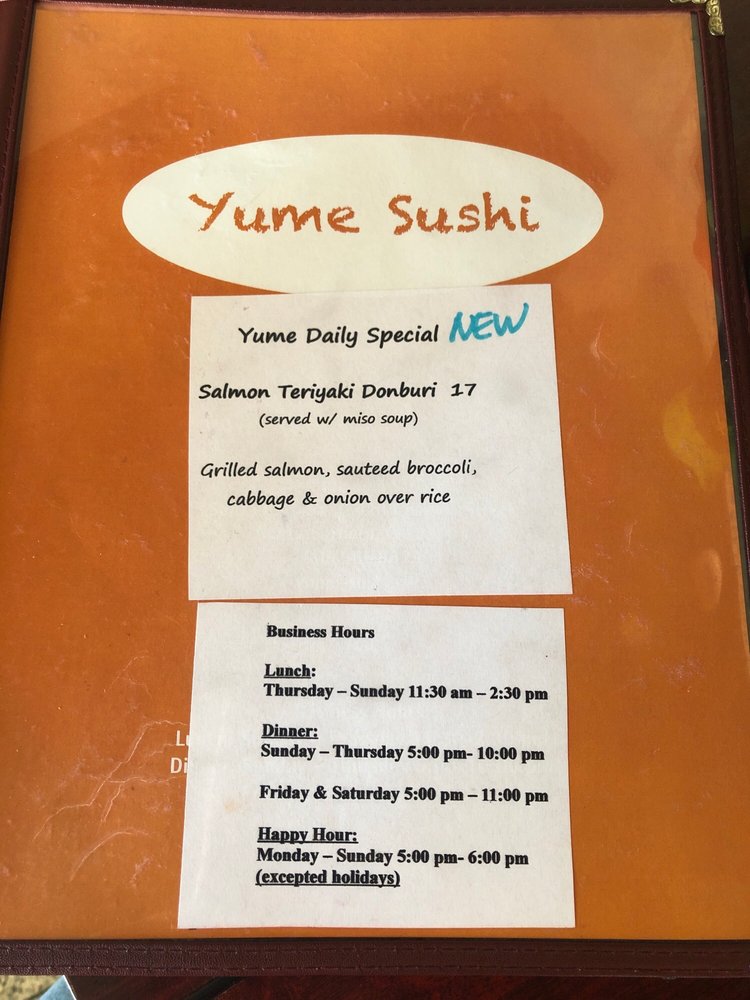 Yume Sushi
Yume Daily Special NEW
Salmon Teriyaki Donburi 17
(served w/ miso soup)
Grilled salmon, sauteed broccoli,
cabbage & onion over rice
Business Hours
Lunch:
Thursday – Sunday 11:30 am – 2:30 pm
Dinner:
Sunday – Thursday 5:00 pm- 10:00 pm
Friday & Saturday 5:00 pm – 11:00 pm
Happy Hour:
Monday – Sunday 5:00 pm- 6:00 pm
(excepted holidays)